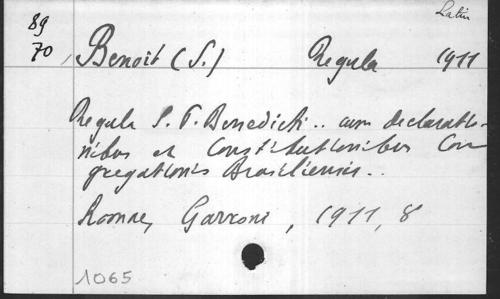 Latin
89
70
Benoit (S.) Regula 1911
Regula S. P. Benedicti .. cum declaratio-
nibus et Constitutionibus Con
gregationis Brasiliensis..
Romae, Garroni, 1911, 8
1065